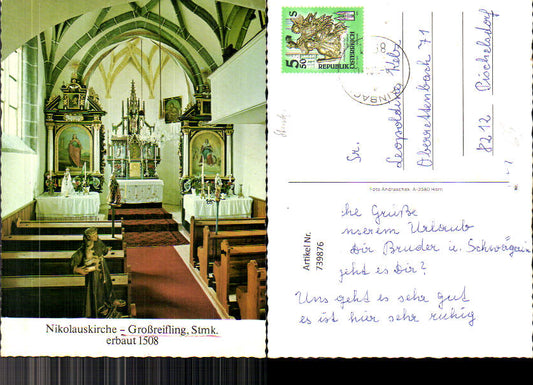 Nikolauskirche – Großreifling, Stmk.
erbaut 1508
5 50
S
REPUBLIK ÖSTERREICH
Fr.
Leopoldine Kelz
Oberrettenbach 71
8212 Pischelsdorf
Foto Andraschek, A-3580 Horn
Artikel Nr.
739876
he Grüße
nserem Urlaub
Dir Bruder u. Schwägerin
geht es Dir?
Uns geht es sehr gut
es ist hier sehr ruhig